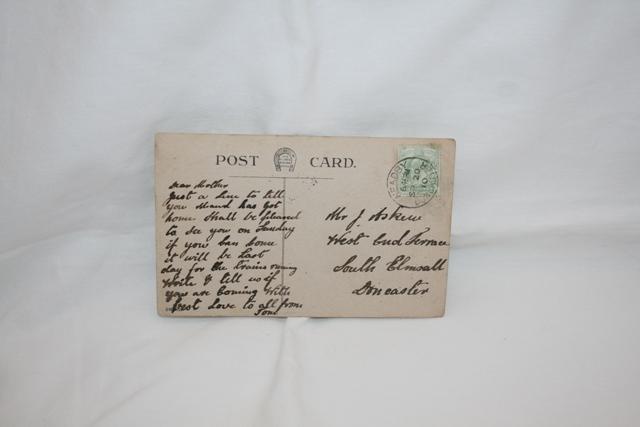 POST CARD.
Dear Mother
Just a line to tell
you Maud has got
home shall be pleased
to see you on Sunday
if you can some
it will be last
day for the trains running
Write & tell us if
you are coming with
best Love to all from
Tom
Mr J. Askew
West End Terrace
South Elmsall
Doncaster
20
10